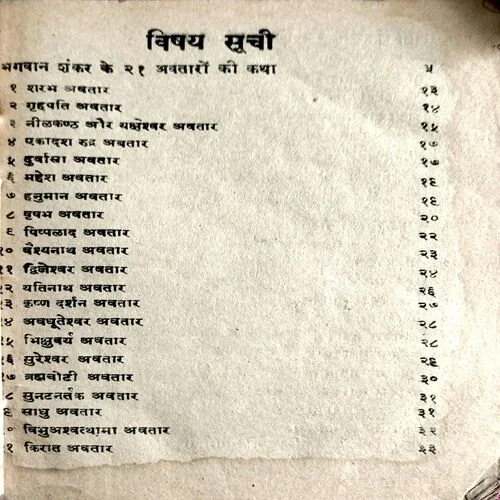 विषय सूची
भगवान शंकर के २१ अवतारों की कथा ५
१ शरभ अवतार १३
२ गृहपति अवतार १४
३ नीलकण्ठ और यक्षेश्वर अवतार १५
४ एकादश रुद्र अवतार १७
५ दुर्वासा अवतार १७
६ महेश अवतार १६
७ हनुमान अवतार १६
८ वृषभ अवतार २०
६ पिप्पलाद अवतार २२
१० वैश्यनाथ अवतार २३
११ द्विजेश्वर अवतार २४
१२ यतिनाथ अवतार २६
१३ कृष्ण दर्शन अवतार २७
१४ अवधूतेश्वर अवतार २८
१५ भिक्षुवर्य अवतार २८
१६ सुरेश्वर अवतार २६
१७ ब्रह्मचोटी अवतार ३०
८ सुनटनर्तक अवतार ३१
६ साधु अवतार ३१
० विभुअश्वत्थामा अवतार ३२
१ किरात अवतार ३३